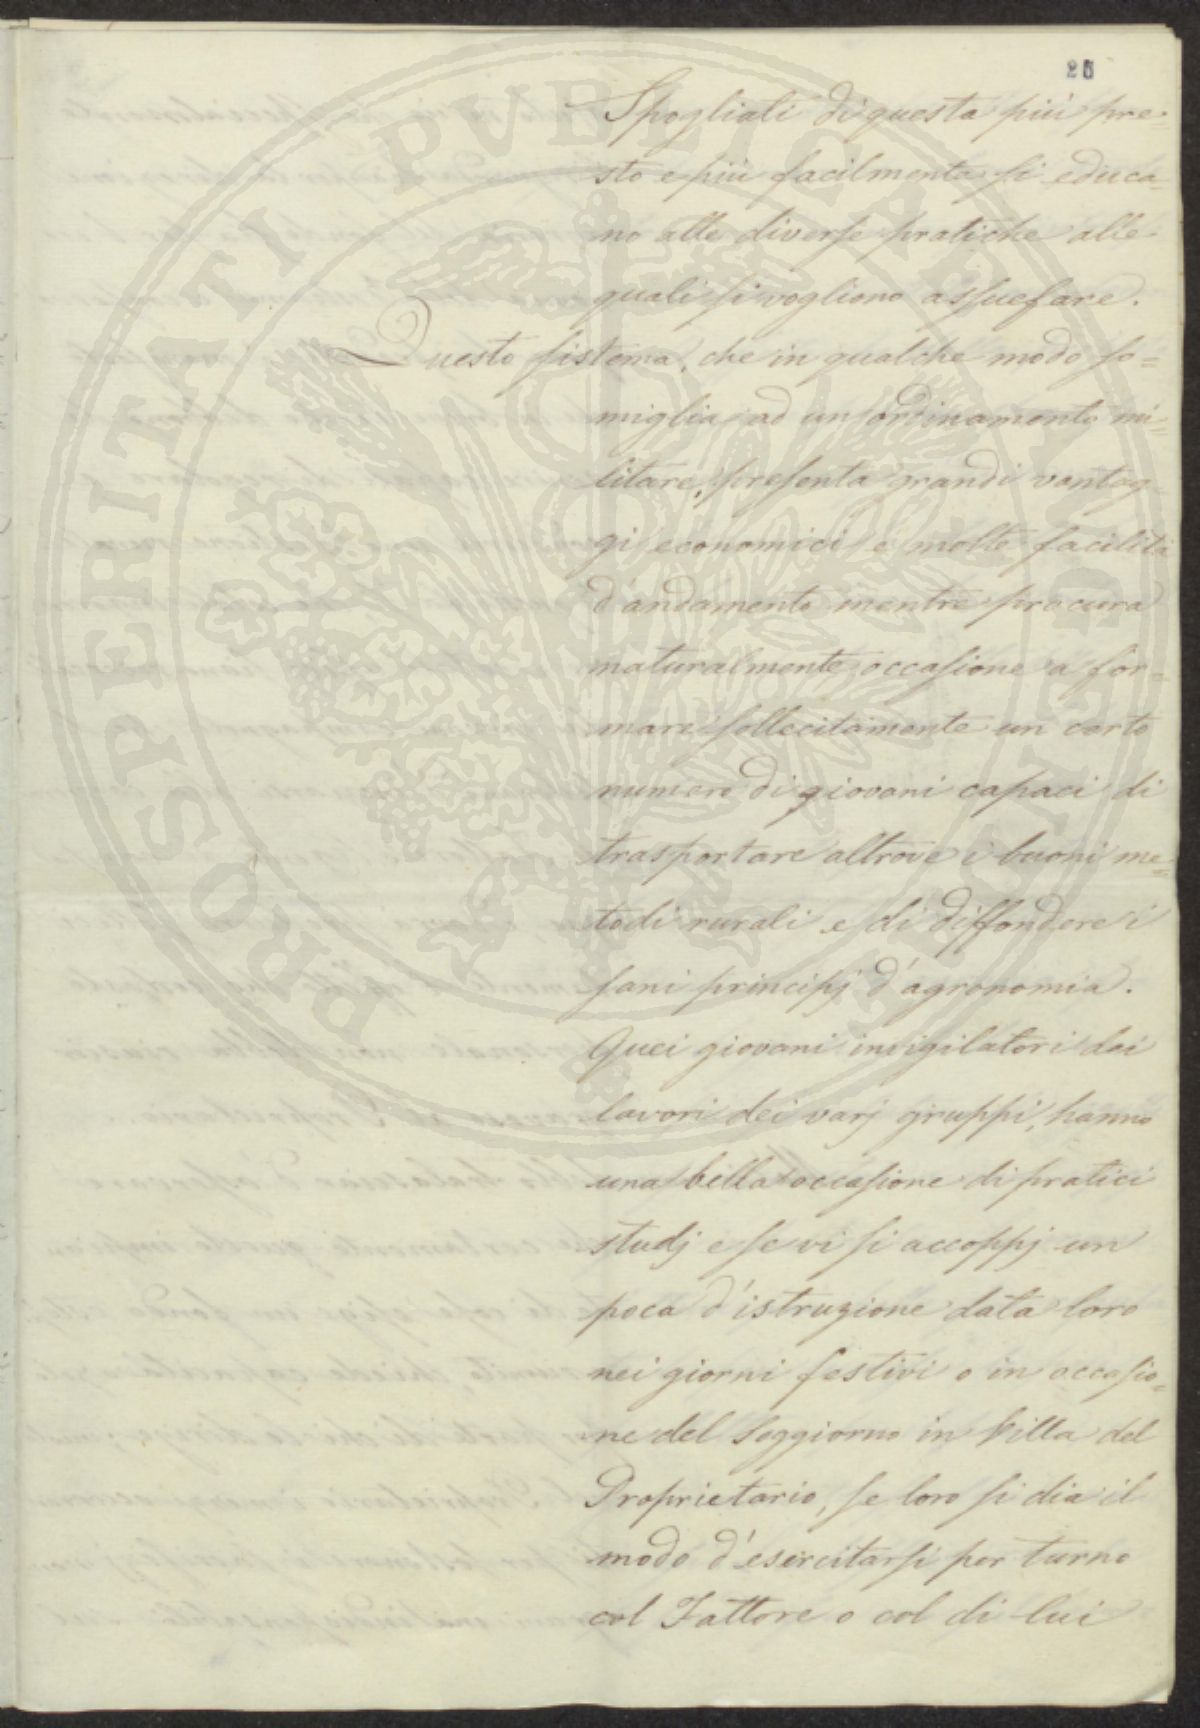 25
Spogliati di questa più pre=
sto e più facilmente si educa=
no alle diverse pratiche alle
quali si vogliono assuefare.
Questo sistema, che in qualche modo so=
miglia ad un ordinamento mi=
litare, presenta grandi vantag=
gi economici e molte facilità
d'andamento mentre procura
naturalmente occasione a for=
mare sollecitamente un certo
numero di giovani capaci di
trasportare altrove i buoni me=
todi rurali e di diffondere i
sani principj d'agronomia.
Quei giovani invigilatori dei
lavori dei varj gruppi, hanno
una bella occasione di pratici
studj e se vi si accoppj un
poca d'istruzione data loro
nei giorni festivi o in occasio=
ne del soggiorno in Villa del
Proprietario, se loro si dia il
modo d'esercitarsi per turno
col Fattore o col di lui
PROSPERITATI PUBLICAE AUGENDAE